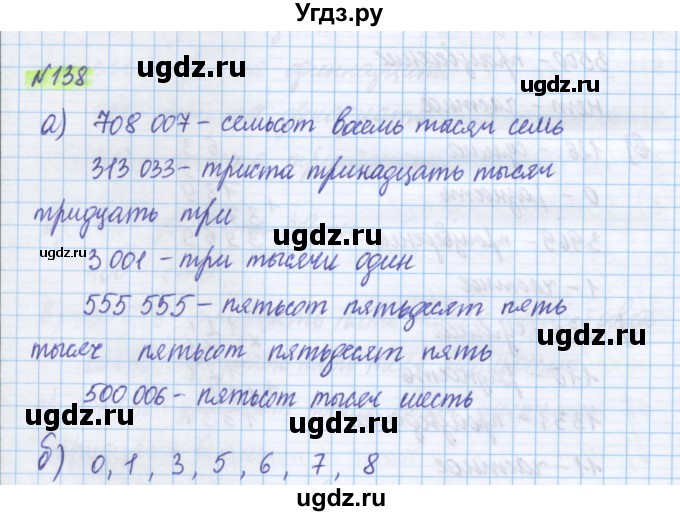 Угдз.ру
№138
а) 708 007 – семьсот восемь тысяч семь
313 033 – триста тринадцать тысяч
тридцать три
3 001 – три тысячи один
555 555 – пятьсот пятьдесят пять
тысяч пятьсот пятьдесят пять
500 006 – пятьсот тысяч шесть
б) 0, 1, 3, 5, 6, 7, 8
ugdz.ru
ugdz.ru
ugdz.ru
ugdz.ru
ugdz.ru
ugdz.ru
ugdz.ru
ugdz.ru
ugdz.ru
ugdz.ru
ugdz.ru
ugdz.ru